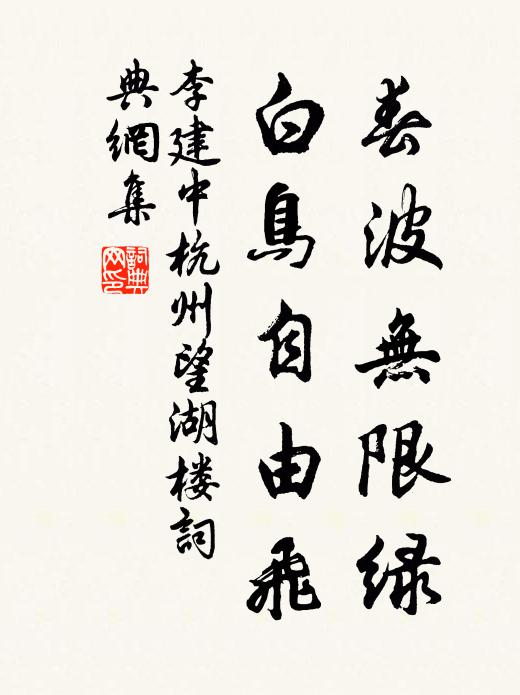 春波無限绿
白鳥自由飛
李建中杭州望湖楼詞
典網集
詞典
网印